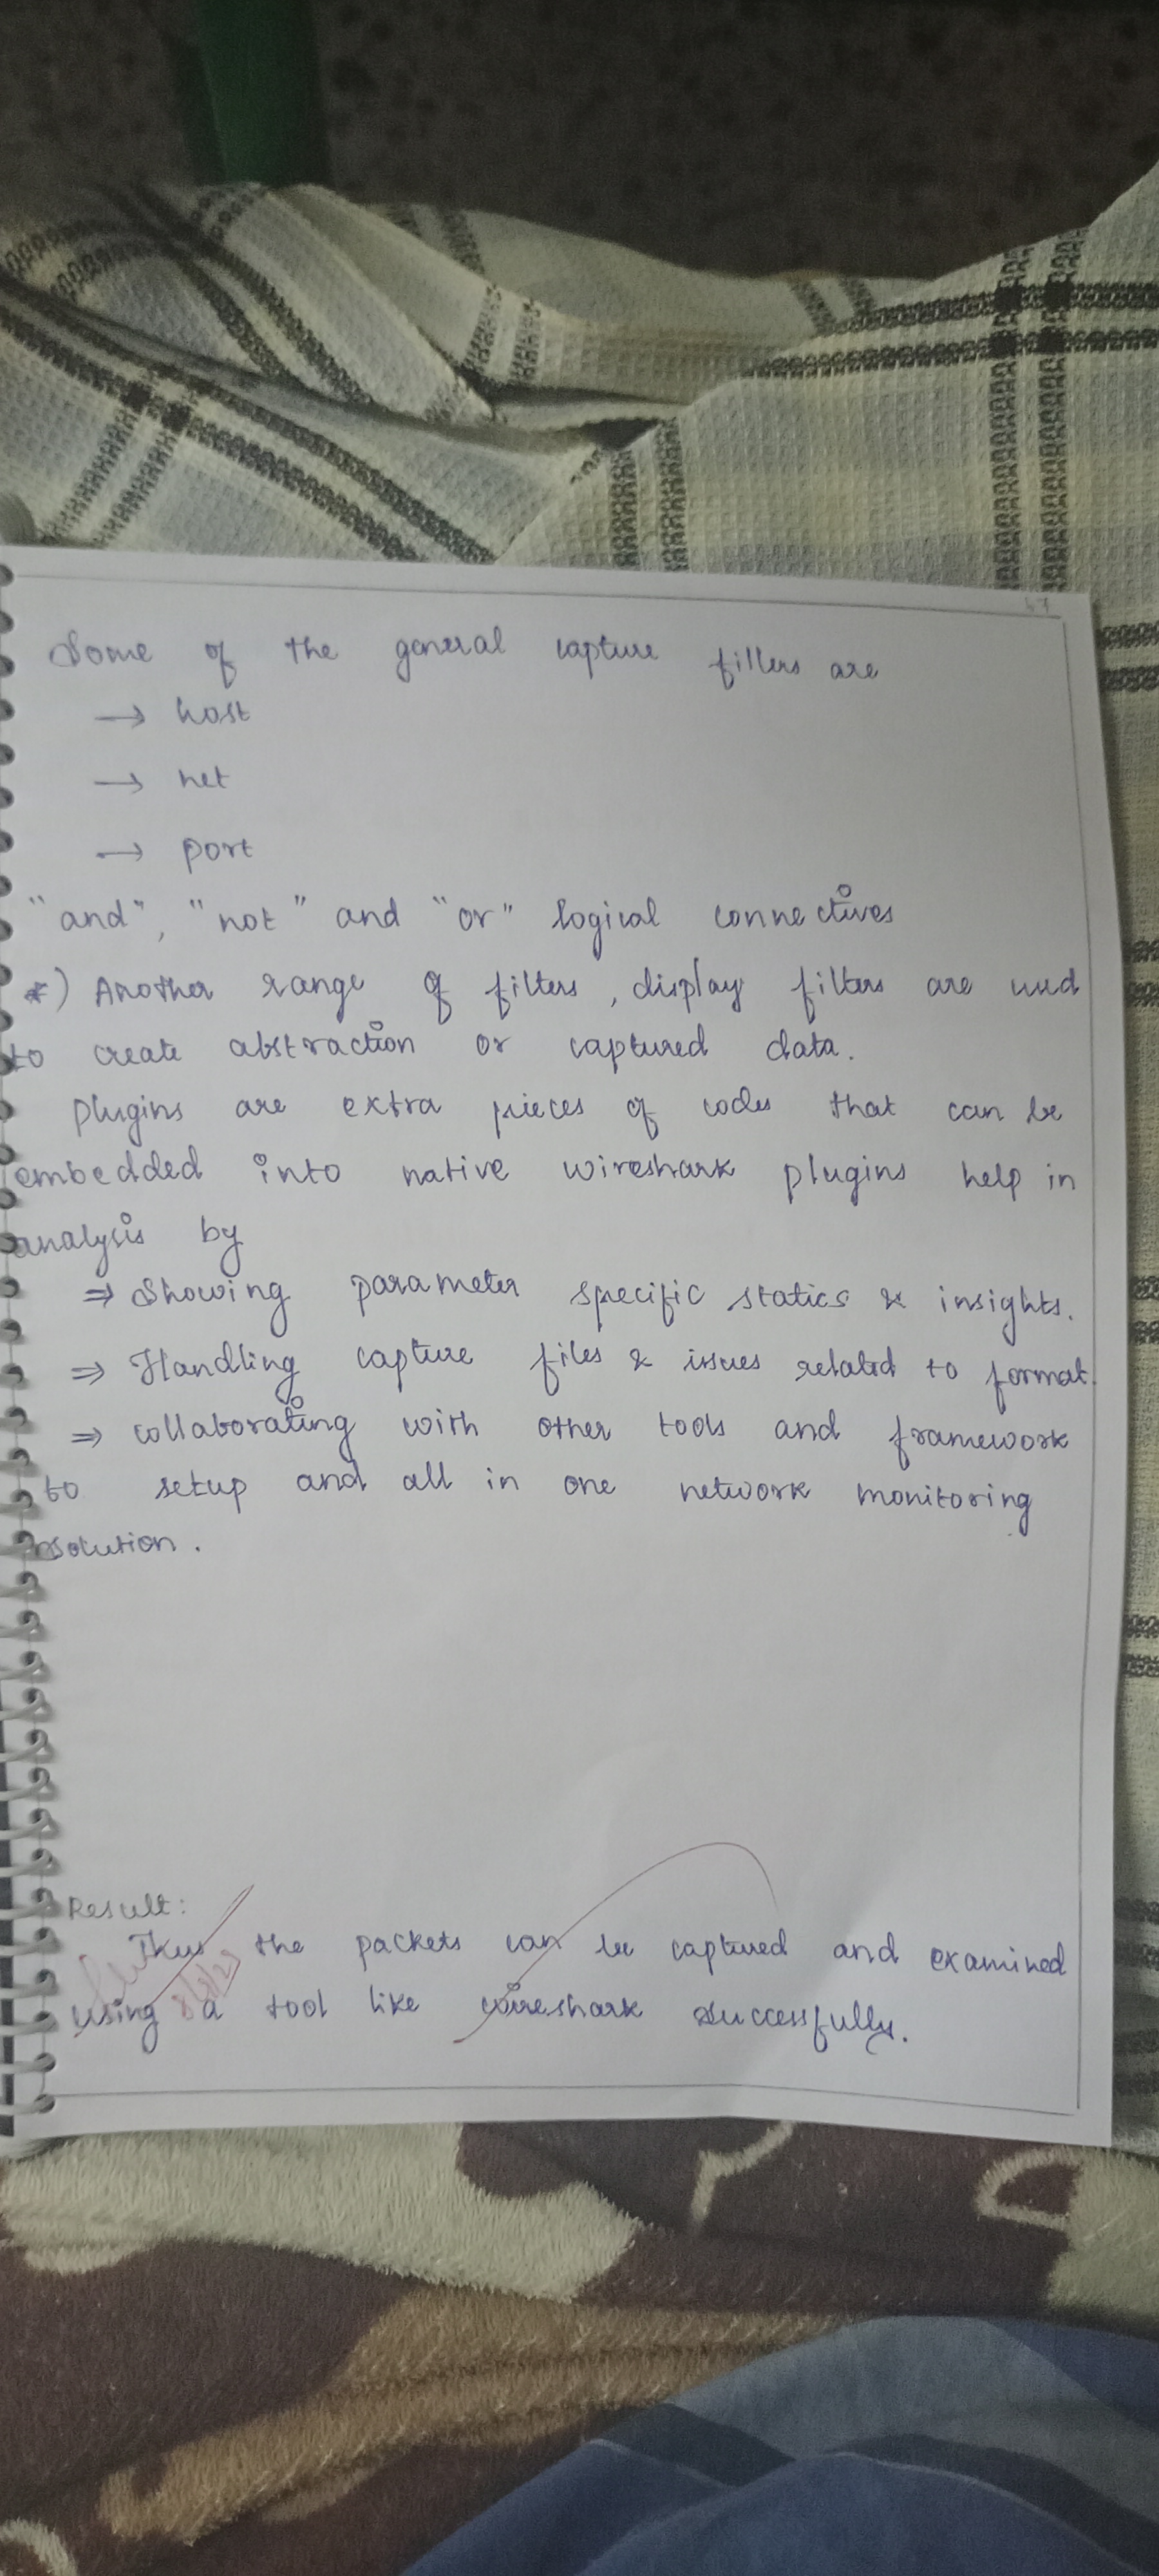 47
Some of the general capture fillers are
→ host
→ net
→ port
"and", "not" and "or" logical connectives
*) Another range of filters, display filters are used
to create abstraction or captured data.
plugins are extra pieces of codes that can be
embedded into native wireshark plugins help in
analysis by
⇒ Showing parameter specific statics & insights.
⇒ Handling capture files & issues related to format.
⇒ collaborating with other tools and framework
to setup and all in one network monitoring
solution.
Result:
Thus the packets can be captured and examined
using a tool like wireshark successfully.